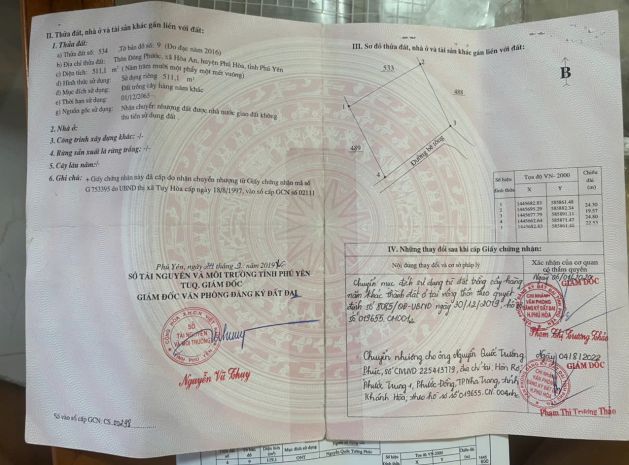 II. Thửa đất, nhà ở và tài sản khác gắn liền với đất:
1. Thửa đất:
a) Thửa đất số: 534 Tờ bản đồ số: 9 (Đo đạc năm 2016)
b) Địa chỉ thửa đất: Thôn Đông Phước, xã Hòa An, huyện Phú Hòa, tỉnh Phú Yên
c) Diện tích: 511,1 m² (Năm trăm mười một phẩy một mét vuông)
d) Hình thức sử dụng: Sử dụng riêng 511,1 m²
đ) Mục đích sử dụng: Đất trồng cây hàng năm khác
e) Thời hạn sử dụng: 01/12/2065
g) Nguồn gốc sử dụng: Nhận chuyển nhượng đất được nhà nước giao đất không
thu tiền sử dụng đất
2. Nhà ở:
3. Công trình xây dựng khác: -/-
4. Rừng sản xuất là rừng trồng: -/-
5. Cây lâu năm:/-
6. Ghi chú: + Giấy chứng nhận này đã cấp do nhận chuyển nhượng từ Giấy chứng nhận mã số
G 753395 do UBND thị xã Tuy Hòa cấp ngày 18/8/1997, vào sổ cấp GCN số 02111
Phú Yên, ngày
SỞ TÀI NGUYÊN VÀ MÔI TRƯỜNG TỈNH PHÚ YÊN
TUQ. GIÁM ĐỐC
GIÁM ĐỐC VĂN PHÒNG ĐĂNG KÝ ĐẤT ĐAI
SỞ
TÀI NGUYÊN
VÀ MÔI TRƯỜNG
Nguyễn Vũ Thuy
Số vào sổ cấp GCN: CS
III. Sơ đồ thửa đất, nhà ở và tài sản khác gắn liền với đất:
533
2
B
488
1
3
489
Đường bê tông
4
Số hiệu đỉnh thửa
Tọa độ VN- 2000
Chiều dài (m)
X Y
1 1445682.83 585861.48
24.30
2 1445695.29 585882.34
19.57
3 1445677.79 585891.11
24.80
4 1445662.64 585871.47
22.53
1 1445682.83 585861.48
IV. Những thay đổi sau khi cấp Giấy chứng nhận:
Nội dung thay đổi và cơ sở pháp lý
Xác nhận của cơ quan
có thẩm quyền
Chuyển mục đích sử dụng từ đất trồng cây hàng
năm khác thành đất ở tại nông thôn theo quyết
định số UBND ngày 30/12/2019, hồ sơ
số 013655.CN001
GIÁM ĐỐC
CHI NHÁNH
VĂN PHÒNG
ĐĂNG KÝ ĐẤT ĐAI
H.PHÚ HÒA
Phạm Thị Trương Thảo
Chuyển nhượng cho ông Nguyễn Quốc Trường
Phúc, số CMND 225413719, địa chỉ tại Hòn Rớ
Phước Trung 1, Phước Đồng, TP Nha Trang, tỉnh
Khánh Hòa; theo hồ sơ số 013655.CN.004
Ngày 04/8/2022
GIÁM ĐỐC
CHI NHÁNH
VĂN PHÒNG
ĐĂNG KÝ ĐẤT ĐAI
H.PHÚ HÒA
Phạm Thị Trương Thảo
Mục đích sử dụng
ONT
Tọa độ VN-2000